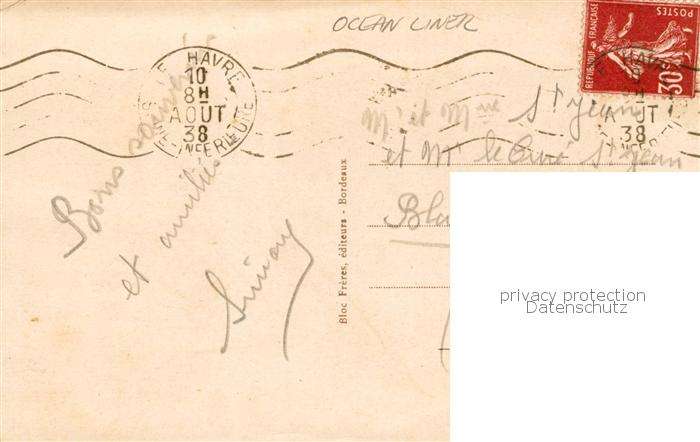 OCEAN LINER
LE HAVRE
10
8H
AOUT
38
SEINE-INFERIEURE
REPUBLIQUE FRANÇAISE
POSTES
30
HAVRE
8H
AOUT
38
INFERIEURE
Bons souvenirs
et amitiés
Simon
Bloc Frères, éditeurs - Bordeaux
Mr et Mme St Jean
et Mr le Curé St Jean
privacy protection
Datenschutz